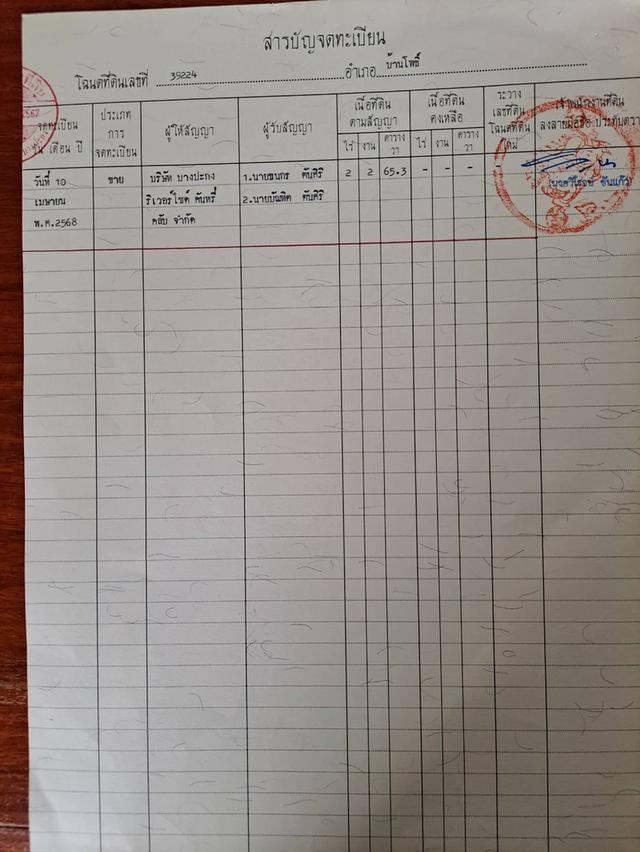 สารบัญจดทะเบียน
โฉนดที่ดินเลขที่ 39224 อำเภอ บ้านโพธิ์
จดทะเบียน
วัน เดือน ปี
ประเภท
การ
จดทะเบียน
ผู้ให้สัญญา
ผู้รับสัญญา
เนื้อที่ดิน
ตามสัญญา
ไร่ งาน ตาราง
วา
เนื้อที่ดิน
คงเหลือ
ไร่ งาน ตาราง
วา
ระวาง
เลขที่ดิน
โฉนดที่ดิน
ใหม่
เจ้าพนักงานที่ดิน
ลงลายมือชื่อ ประทับตรา
วันที่ 10 ขาย บริษัท บางปะกง 1.นายธนกร ตับศิริ 2 2 65.3 - - - -
เมษายน ริเวอร์ไซด์ คันทรี่ 2.นายบัณฑิต ตับศิริ
พ.ศ.2568 คลับ จำกัด